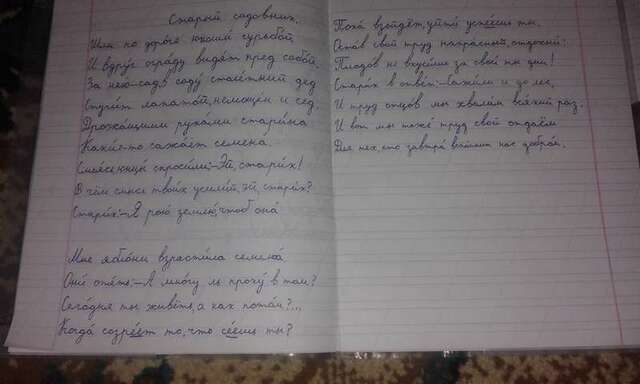 Старый садовник.
Шли по дороге юноши гурьбой
И вдруг ограду видят пред собой.
За нею-сад, в саду столетний дед
Стучит лопатой, немощен и сед.
Дрожащими руками старина
Какие-то сажает семена.
Смеясь, юнцы спросили:-Эй, старик!
В чём смысл твоих усилий, эй, старик?
Старик:-Я рою землю, чтоб она
Мне яблони взрастила семена
Они опять:-А много ль проку в том?
Сегодня ты живёшь, а как потом?...
Когда созреет то, что сеешь ты?
Пока взойдёт, уйти успеешь ты.
Оставь свой труд напрасный, отдохни!
Плодов не вкусишь за свои ты дни!
Старик в ответ:-Сажали и до нас,
И труд отцов мы хвалим всякий раз.
И вот мы тоже труд свой отдаём
Для тех, кто завтра вспомнит нас добром.